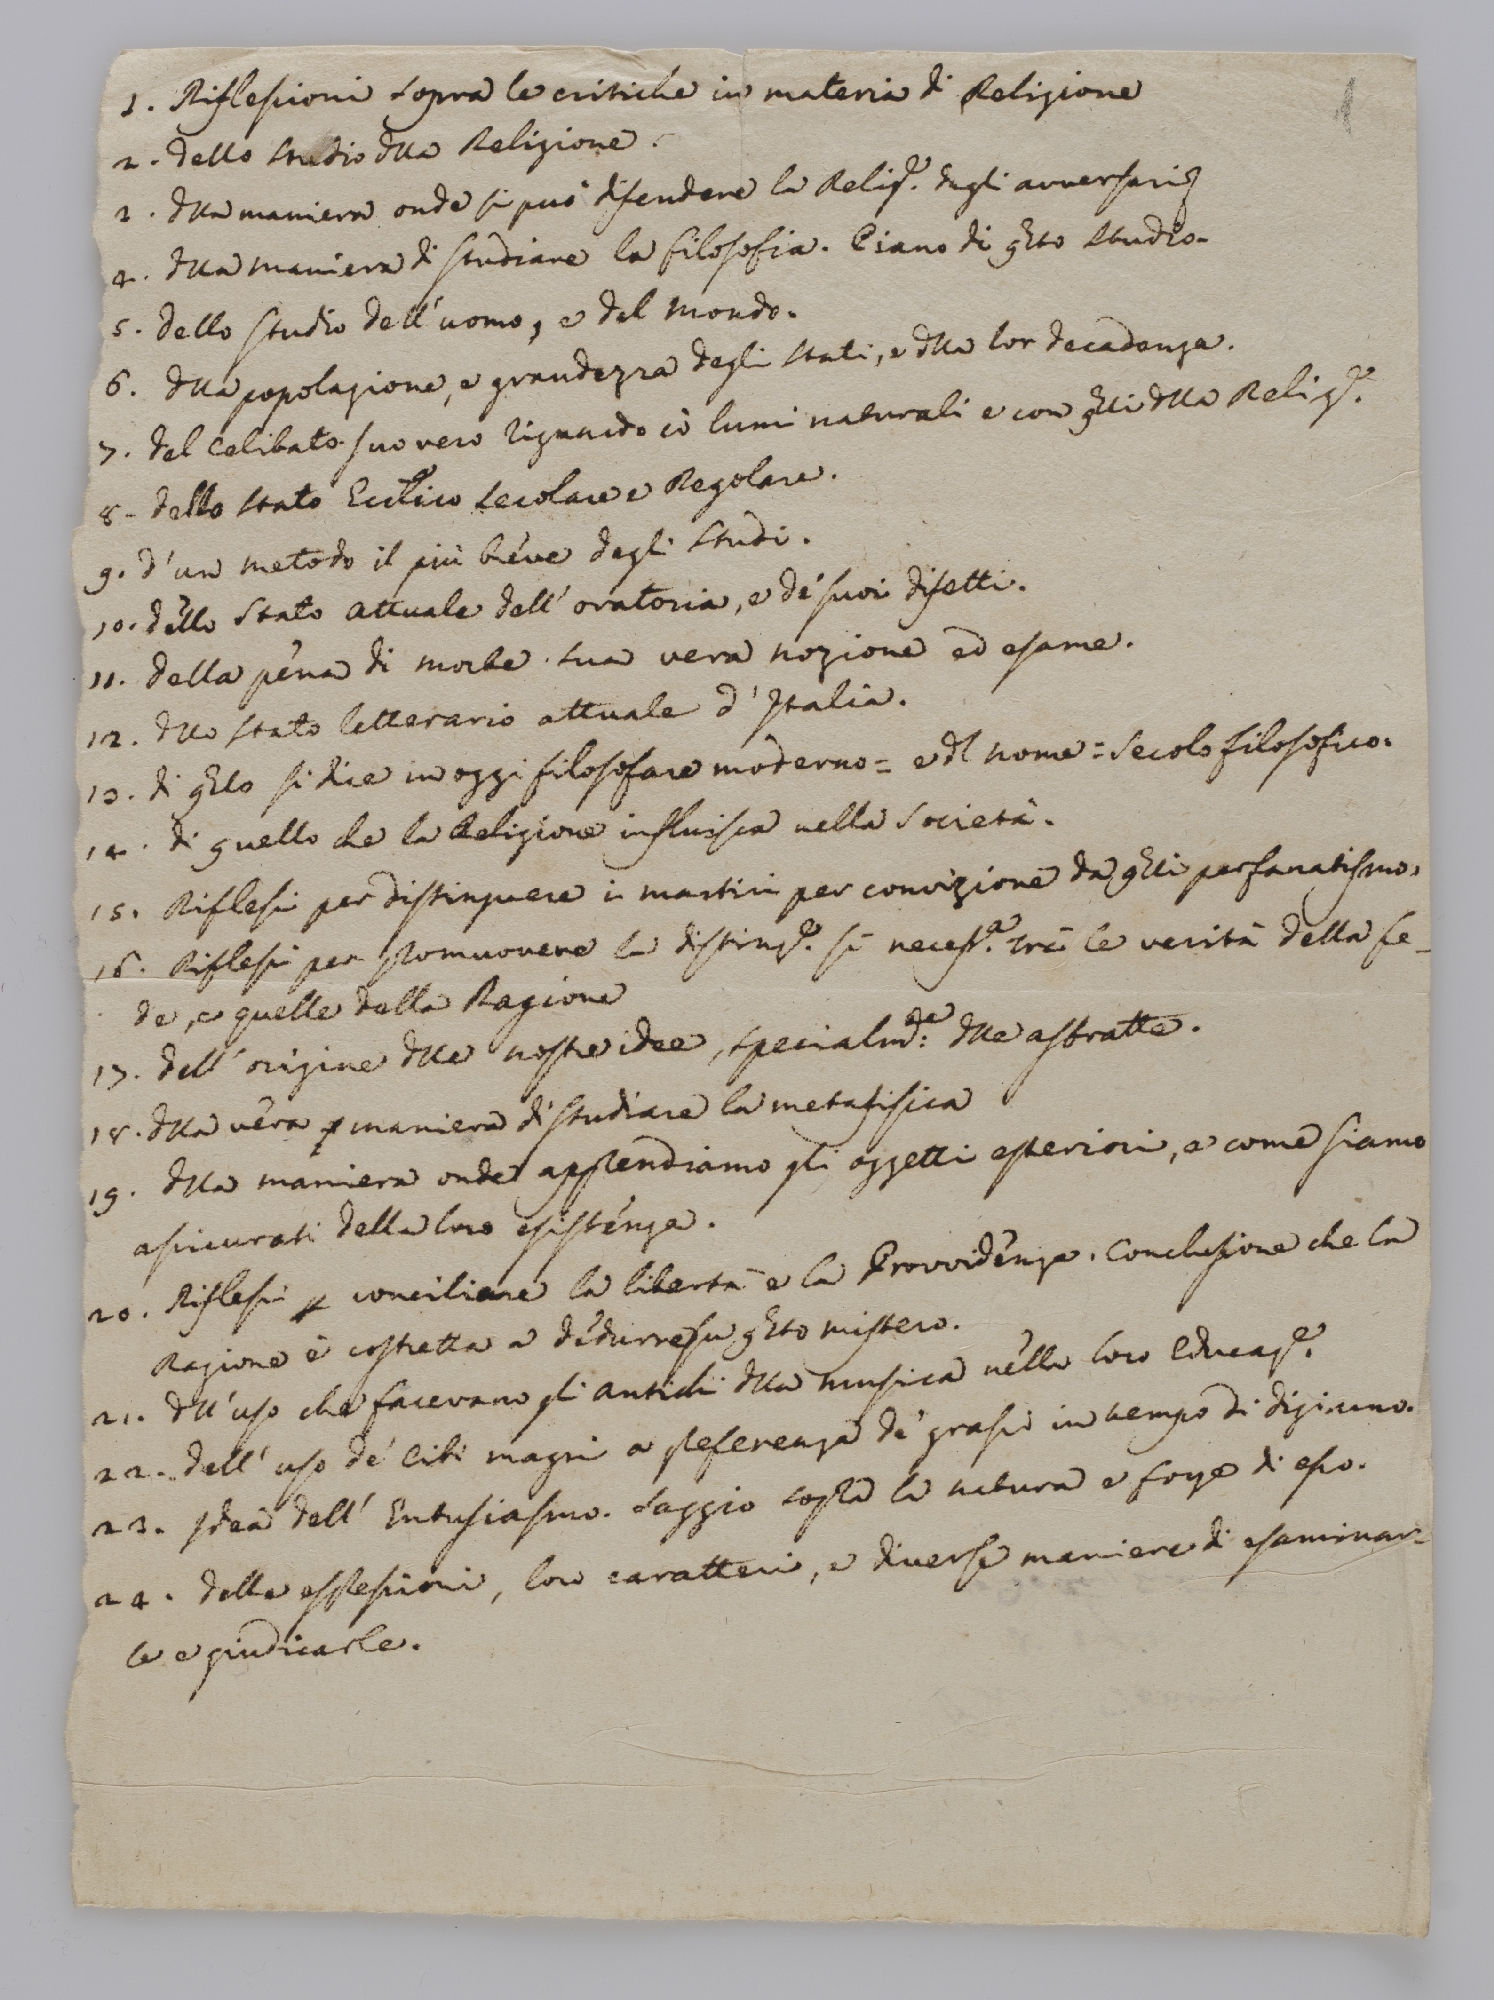 1
1. Riflessioni sopra le critiche in materia di Religione
2. dello studio dlla Religione.
3. dlla maniera onde si può difendere la Relig.e dagli avversarj
4. dlla maniera di studiare la filosofia. Piano di qsto studio.
5. dello studio dell'uomo, e del mondo.
6. dlla popolazione, e grandezza degli stati, e dlla lor decadenza.
7. del celibato. suo vero riguardo cò lumi naturali e con qlli dlla Relig.e
8. dello stato Ecclico secolare e Regolare.
9. d'un metodo il più breve degli studi.
10. dello stato attuale dell'oratoria, e de' suoi difetti.
11. della pena di morte. sua vera nozione ed esame.
12. dllo stato letterario attuale d'Italia.
13. di qllo si dice in oggi filosofare moderno = e dl nome = secolo filosofico.
14. di quello che la Religione influisca nella società.
15. Riflessi per distinguere i martiri per convizione da qlli per fanatismo.
16. Riflessi per promuovere la distinz.e sì necess.a trà le verità della fe-
de, e quelle della Ragione
17. dell'origine dlle nostre idee, specialm.te dlle astratte.
18. dlla vera maniera di studiare la metafisica
19. dlla maniera onde apprendiamo gli oggetti esteriori, e come siamo
assicurati della loro esistenza.
20. Riflessi p conciliare la libertà e la Provvidenza. Conclusione che la
Ragione è costretta a dedurre su qsto mistero.
21. dll'uso che facevano gli antichi dlla musica nella loro educaz.e
22. dell'uso de' cibi magri a preferenza de' grassi in tempo di digiuno.
23. Idea dell'Entusiasmo. saggio sopra la natura e forze di esso.
24. delle espressioni, loro caratteri, e diverse maniere di esaminar-
le e giudicarle.